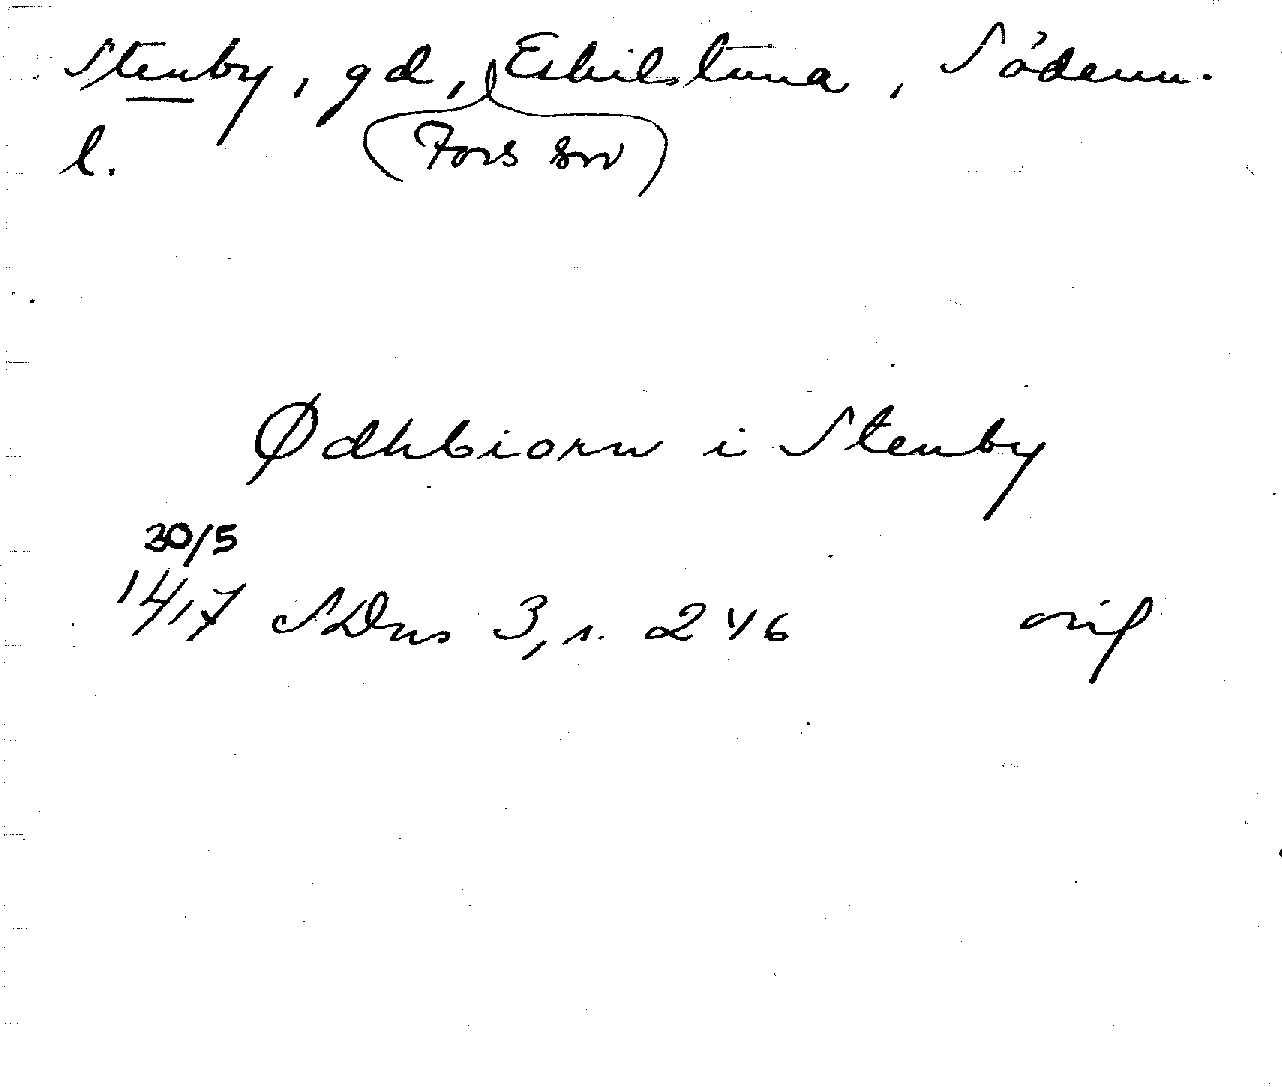 Stenby, gd, Eskilstuna, Söderm.
l. (Fors sn)
Ødhbiorn i Stenby
30/5
1417 SDns 3, s. 246 orig